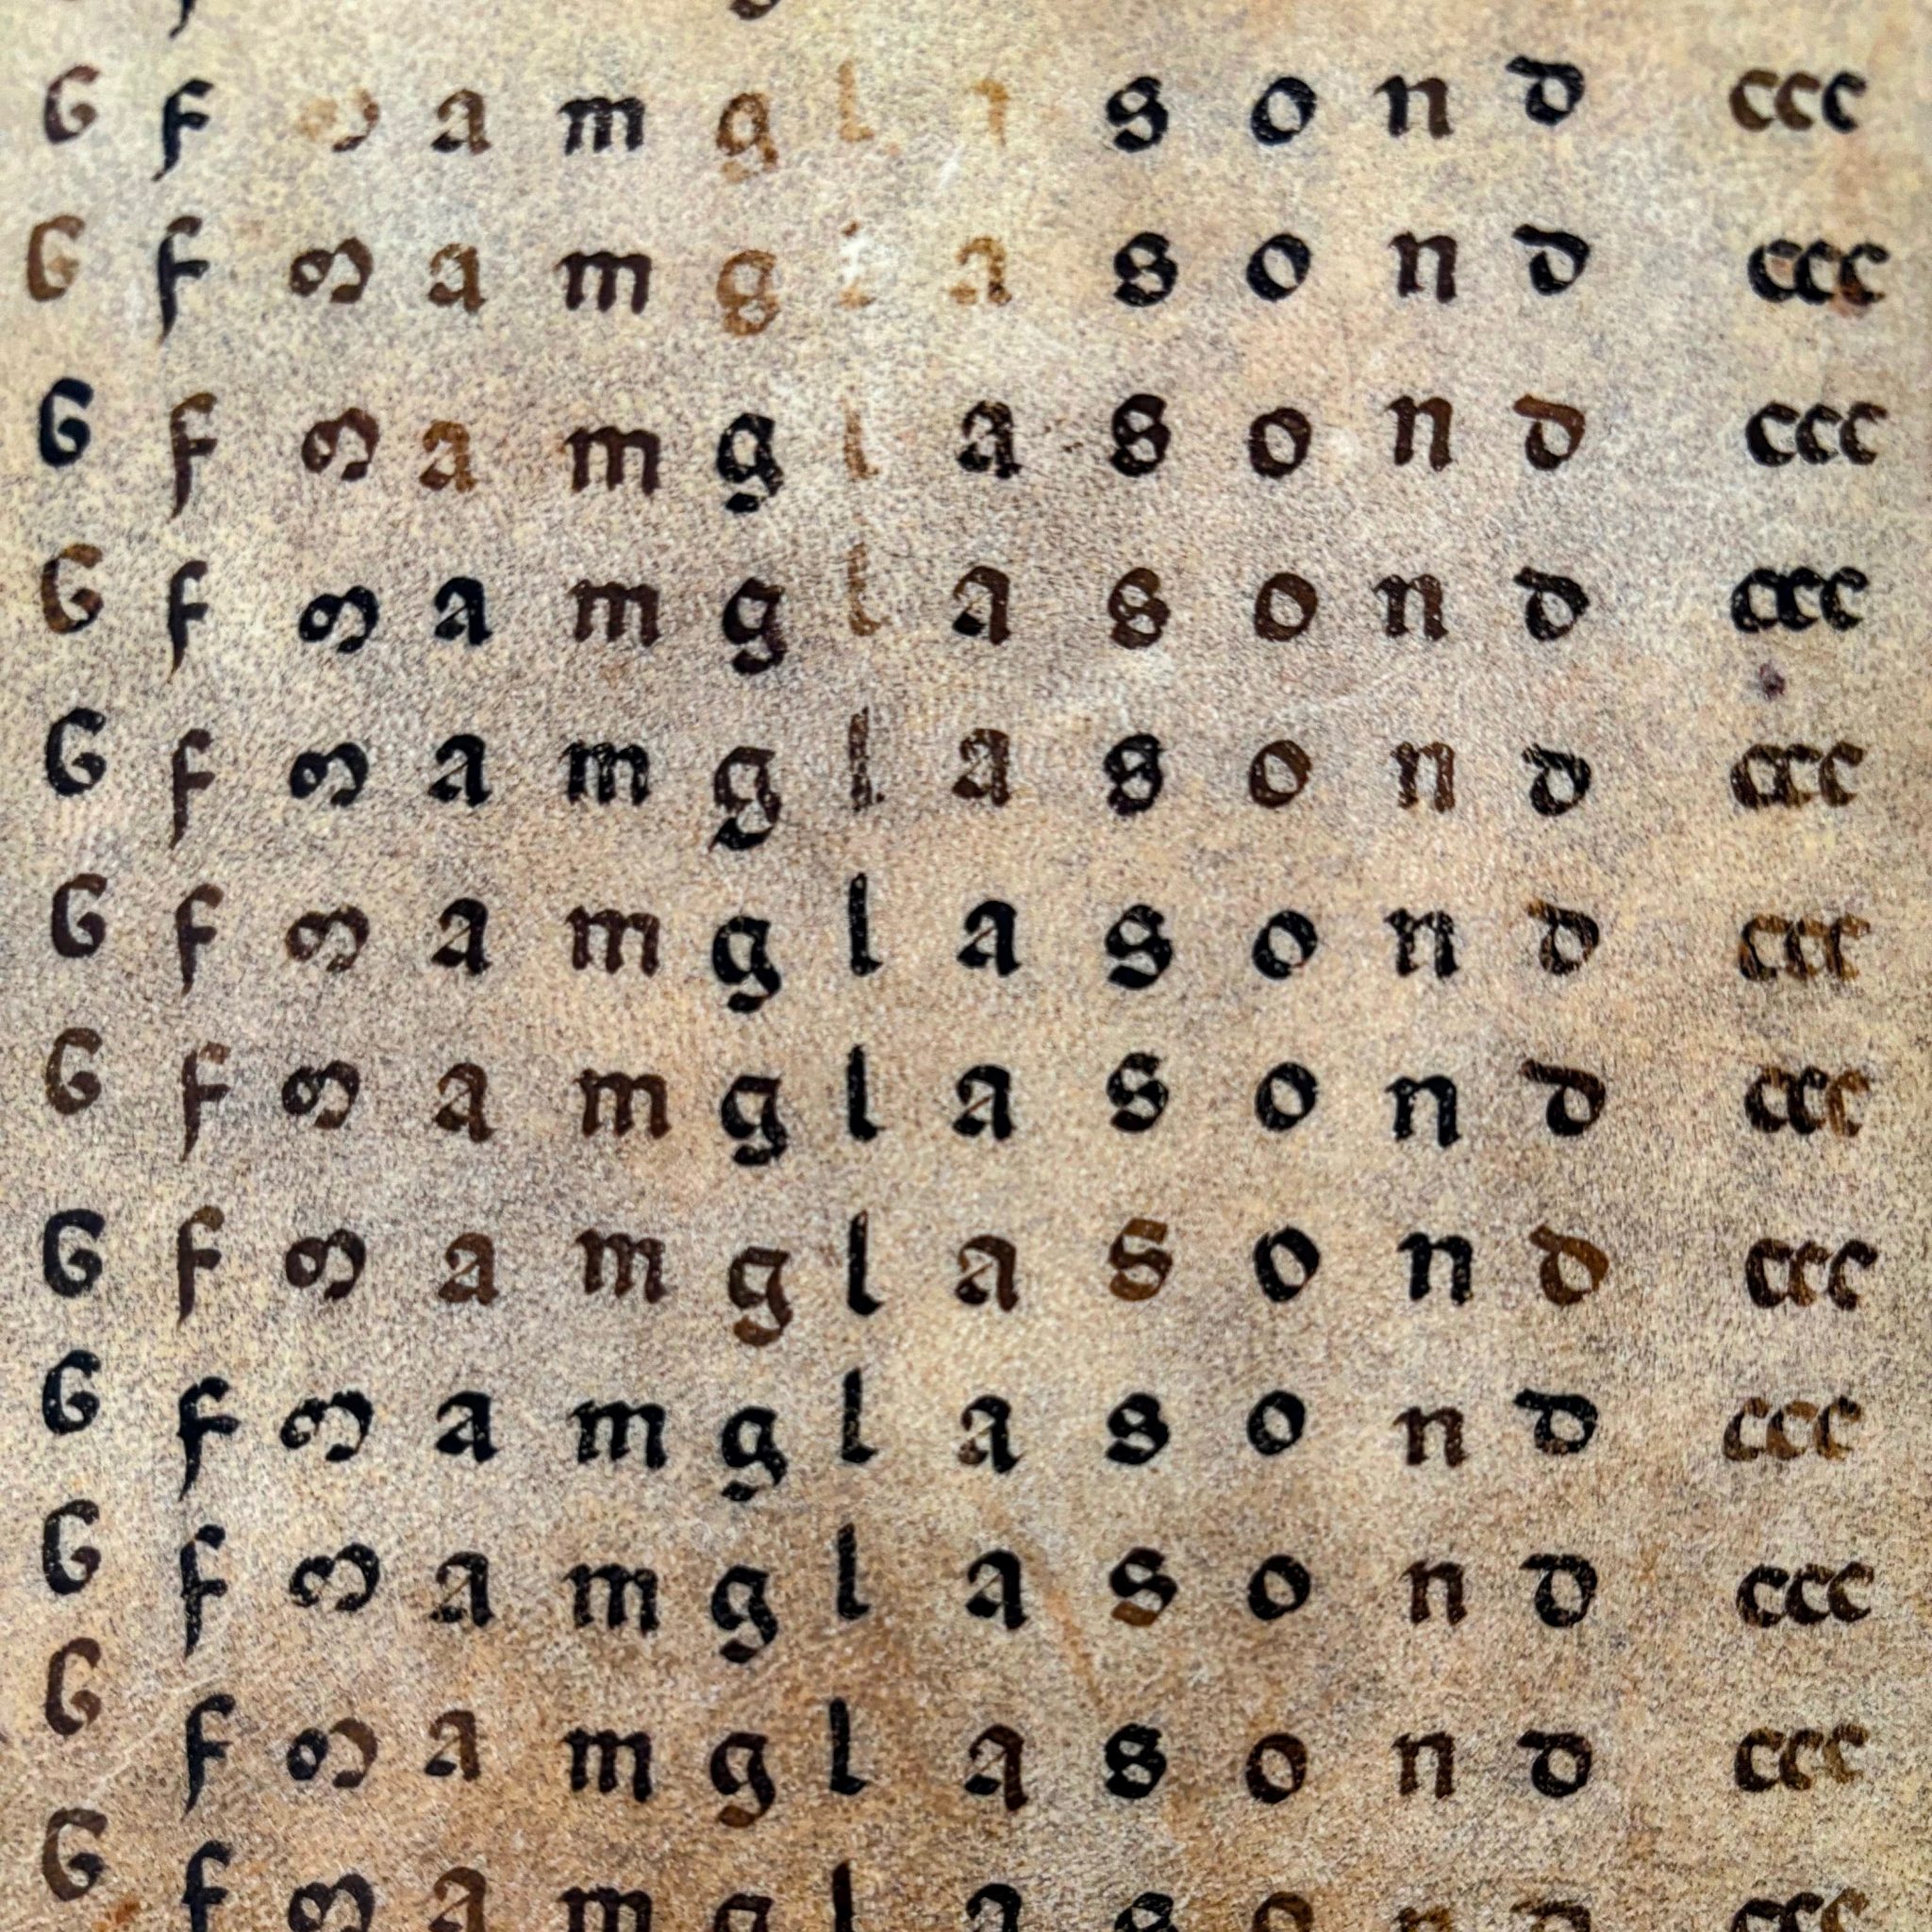 G f m a m g l a s o n d ccc
G f m a m g l a s o n d ccc
G f m a m g l a s o n d ccc
G f m a m g l a s o n d ccc
G f m a m g l a s o n d ccc
G f m a m g l a s o n d ccc
G f m a m g l a s o n d ccc
G f m a m g l a s o n d ccc
G f m a m g l a s o n d ccc
G f m a m g l a s o n d ccc
G f m a m g l a s o n d ccc
G f m a m g l a s o n d ccc